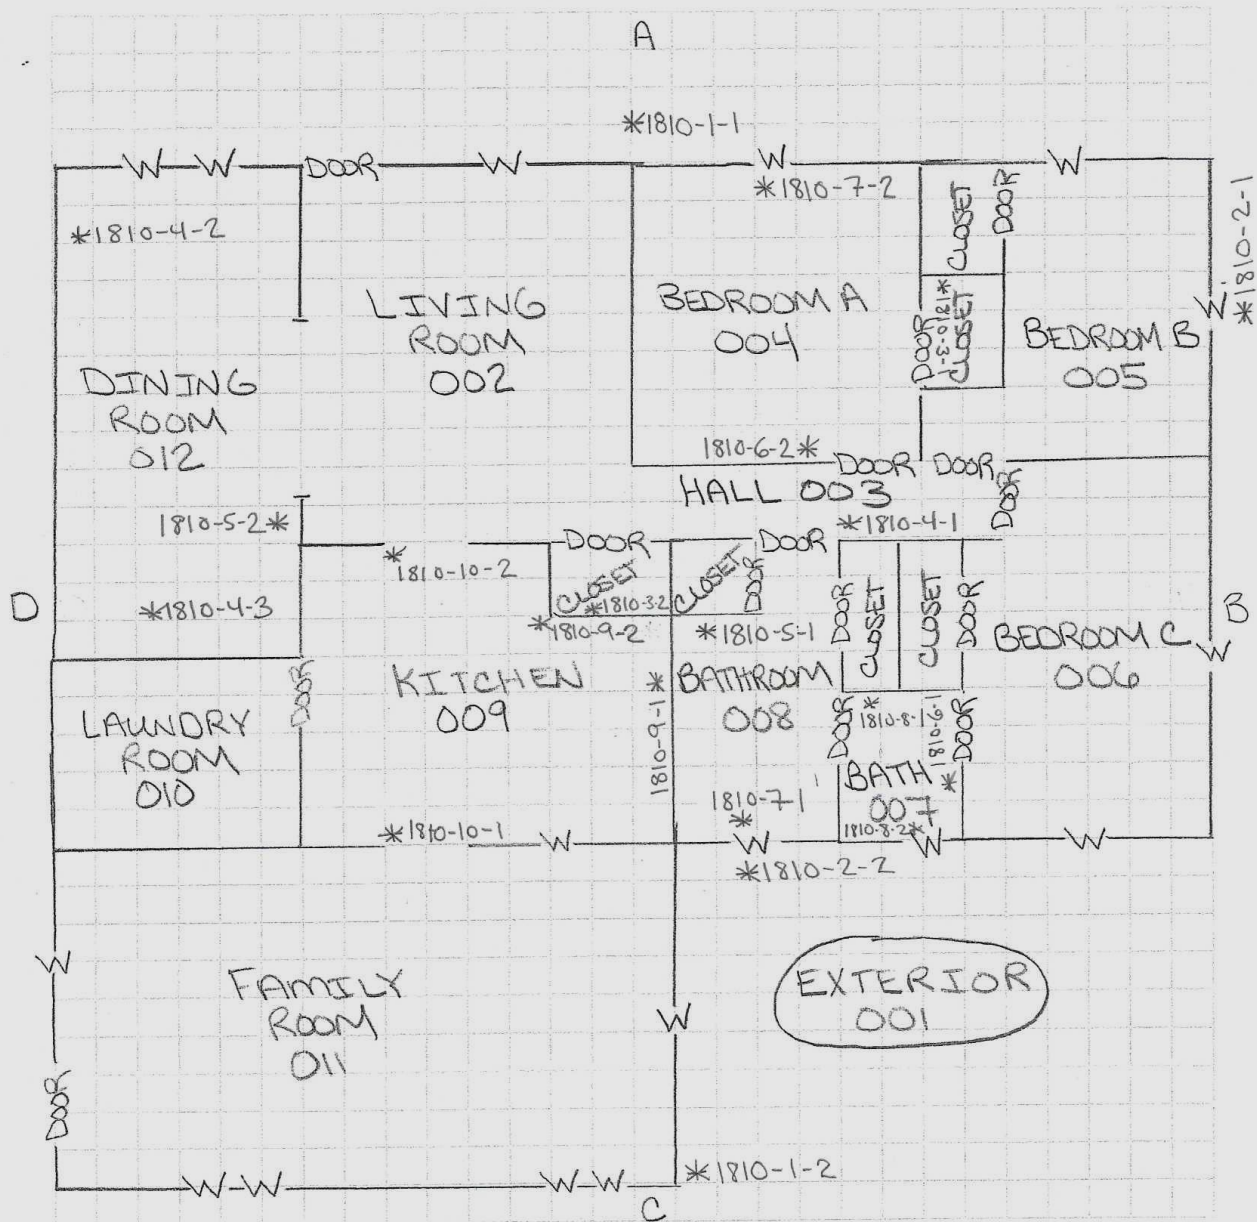 A
*1810-1-1
W W DOOR W W W
*1810-7-2
*1810-4-2
CLOSET
DOOR
*1810-2-1
W
LIVING
ROOM
002
BEDROOM A
004
DOOR
CLOSET
BEDROOM B
005
DINING
ROOM
012
1810-6-2*
DOOR DOOR
DOOR
HALL 003
1810-5-2*
*1810-4-1
*1810-10-2
DOOR
DOOR
CLOSET
*1810-3-2
CLOSET
DOOR
DOOR
CLOSET
CLOSET
DOOR
D
*1810-4-3
*1810-9-2
*1810-5-1
B
BEDROOM C
006
W
DOOR
KITCHEN
009
*
1810-9-1
BATHROOM
008
DOOR
*
1810-8-1
1810-6-1
*
DOOR
LAUNDRY
ROOM
010
BATH
007
1810-7-1
*
*1810-10-1
1810-8-2*
W W W W
*1810-2-2
W
FAMILY
ROOM
011
W
EXTERIOR
001
DOOR
*1810-1-2
W W W W
C